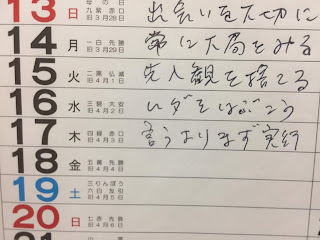 13 日 母の日 九紫 赤口 旧3月28日 出会いを大切に
14 月 一白 先勝 旧3月29日 常に大局をみる
15 火 二黒 仏滅 旧4月1日 先入観を捨てる
16 水 三碧 大安 旧4月2日 ムダをはぶこう
17 木 四緑 赤口 旧4月3日 言うよりまず実行
18 金 五黄 先勝 旧4月4日
19 土 三りんぼう 六白 友引 旧4月5日
20 日 七赤 先負 旧4月6日
21